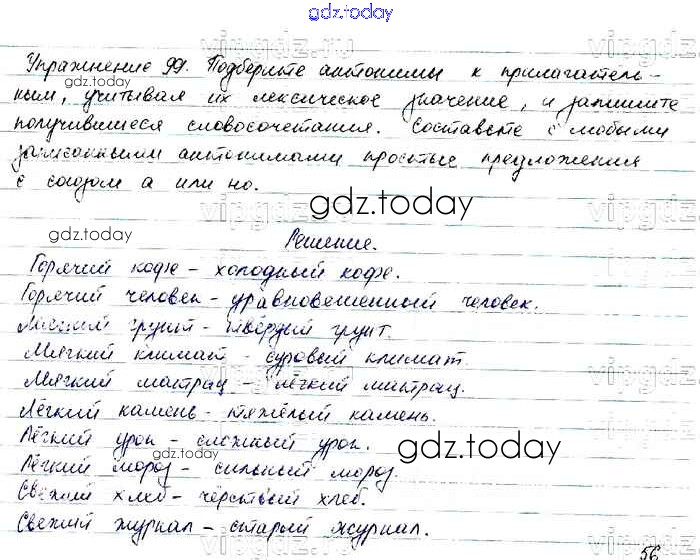 gdz.today
Упражнение 99. Подберите антонимы к прилагатель-
gdz.today
ным, учитывая их лексическое значение, и запишите
получившиеся словосочетания. Составьте с любыми
записанными антонимами простые предложения
с союзом а или но.
gdz.today
gdz.today
Решение.
Горячий кофе - холодный кофе.
Горячий человек - уравновешенный человек.
Мягкий грунт - твёрдый грунт.
Мягкий климат - суровый климат.
Мягкий матрац - лёгкий матрац.
Лёгкий камень - тяжёлый камень.
Лёгкий урок - сложный урок.
gdz.today
Лёгкий мороз - сильный мороз.
Свежий хлеб - чёрствый хлеб.
Свежий журнал - старый журнал.
56